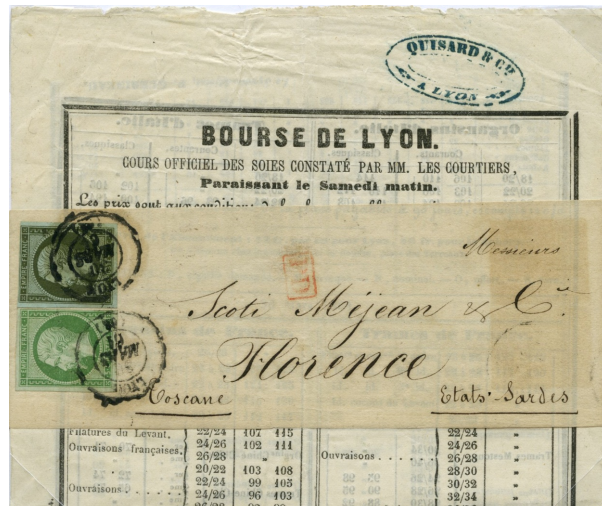 QUISARD & CIE
A LYON
BOURSE DE LYON.
COURS OFFICIEL DES SOIES CONSTATÉ PAR MM. LES COURTIERS,
Paraissant le Samedi matin.
Les prix sont aux conditions
EMPIRE FRANC
EMPIRE FRANC
LYON
MARS
LYON
MARS
Messieurs
Scoti Méjean & Cie.
Florence
Toscane
Etats-Sardes
22/24 107 115
22/24 "
Filatures du Levant.
Ouvraisons françaises. 24/26 102 111
24/26 "
26/28 " "
Ouvraisons . . . . 26/28 "
20/22 103 108
28/30 "
22/24 99 105
30/32 "
Ouvraisons . . . . . 24/26 96 103
32/34 "